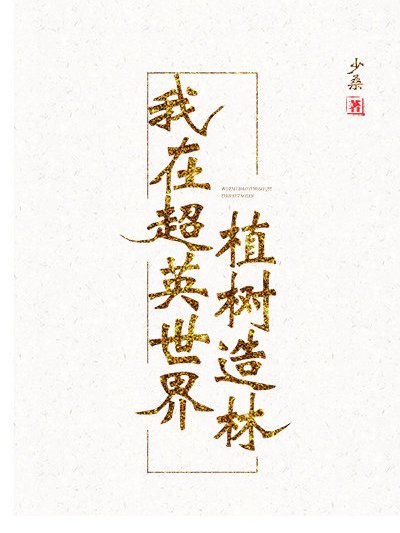 我在超英世界
植树造林
WOZAICHAOYINGSHIJIE
ZHISHUZAOLIN
少桑
著